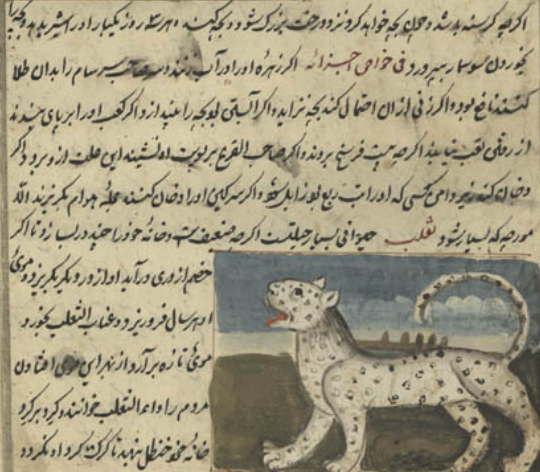 اگرچه کرسنه باشد و چون بچه خواهد کرد نزد درخت بزرک شود و بچه کند و هر سه روز یکبار او را شیر بدهد و بچه را
بخورد سوسمار بپرورد فی خواص اجزائه اگر زهره او را در آب زنند و صاحب سرسام را بدان طلا
کنند نافع بود و اگر زنی از ان احتمال کند بچه نزاید و اگر آبستن بود بچه را بیندازد و اگر کعب او را بر پای بندند
از رفتن تعب نیابد اگرچه بیست فرسنج برود و اگر صاحب القرع بر پوست او نشیند این علت ازو برود و اگر
دخان کنند زیر دامن کسی که او را تب ربع بود زایل شود و اگر سرکین او را دخان کنند جمله هوام بکریزند الا
مورچه که بسیار شود ثعلب حیوانی بسیار حیلتست اگرچه ضعیف است و خانه خود را چند در بسازد تا اگر
خصم از دری درآید او از در دیگر بگریزد و موی
او هر سال فرو ریزد و عناب الثعلب بخورد
موی تازه برآرد از بهر این موی افتادن
مردم را داء الثعلب خوانند و گرد بر گرد
خانه خود حنظل بنهد تا گرگ گرد او نگردد